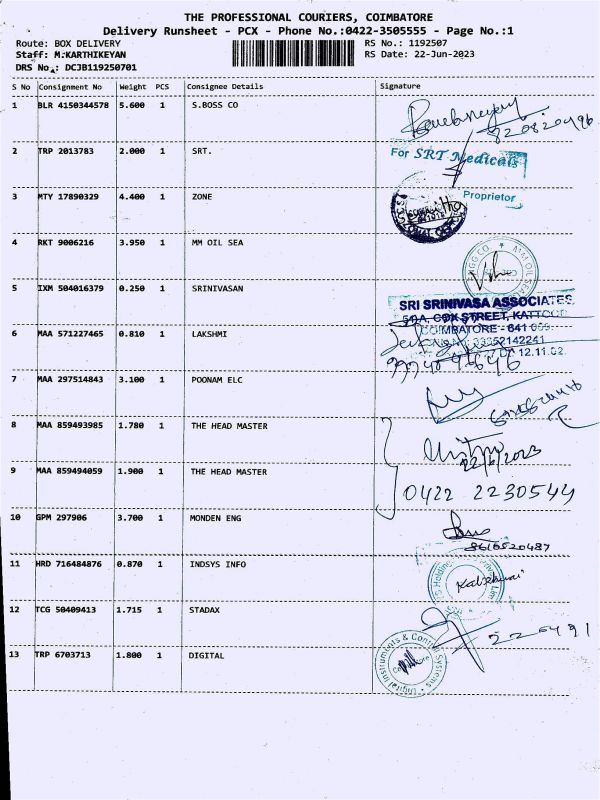 THE PROFESSIONAL COURIERS, COIMBATORE
Delivery Runsheet - PCX - Phone No.:0422-3505555 - Page No.:1
Route: BOX DELIVERY RS No.: 1192507
Staff: M.KARTHIKEYAN RS Date: 22-Jun-2023
DRS No.: DCJB119250701
S No Consignment No Weight PCS Consignee Details Signature
1 BLR 4150344578 5.600 1 S.BOSS CO
2 TRP 2013783 2.000 1 SRT.
For SRT Medicals
Proprietor
3 MTY 17890329 4.400 1 ZONE
4 RKT 9006216 3.950 1 MM OIL SEA
5 IXM 504016379 0.250 1 SRINIVASAN
SRI SRINIVASA ASSOCIATES
COX STREET,
COIMBATORE - 641
12.11.02
6 MAA 571227465 0.810 1 LAKSHMI
7 MAA 297514843 3.100 1 POONAM ELC
8 MAA 859493985 1.780 1 THE HEAD MASTER
22/6/2023
9 MAA 859494059 1.900 1 THE HEAD MASTER
0422 2230544
10 GPM 297906 3.700 1 MONDEN ENG
8610520487
11 HRD 716484876 0.870 1 INDSYS INFO
12 TCG 50409413 1.715 1 STADAX
13 TRP 6703713 1.800 1 DIGITAL
Digital Instruments & Control Systems